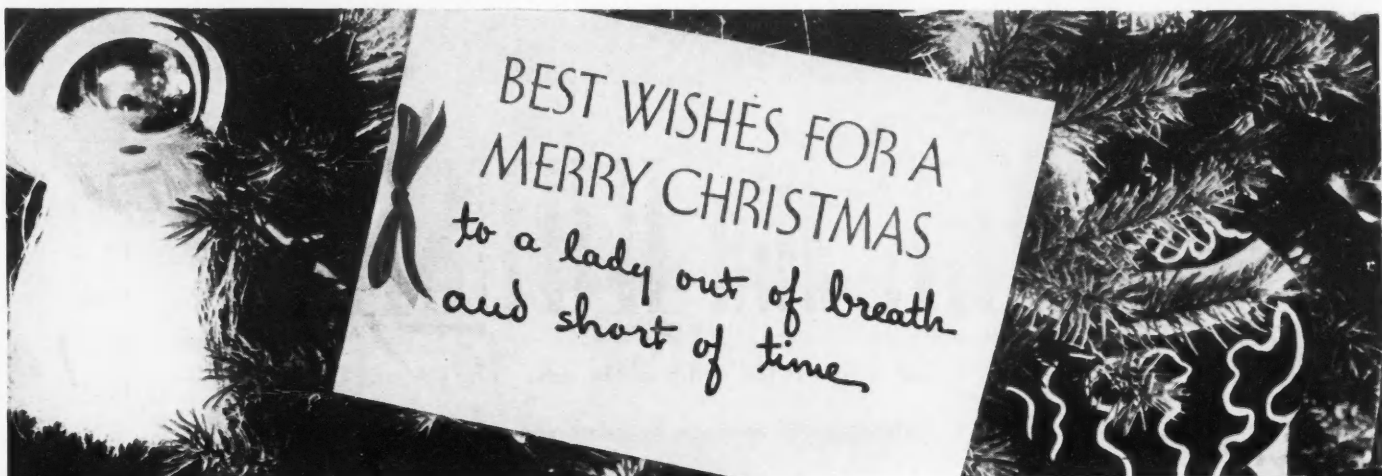 BEST WISHES FOR A
MERRY CHRISTMAS
to a lady out of breath
and short of time